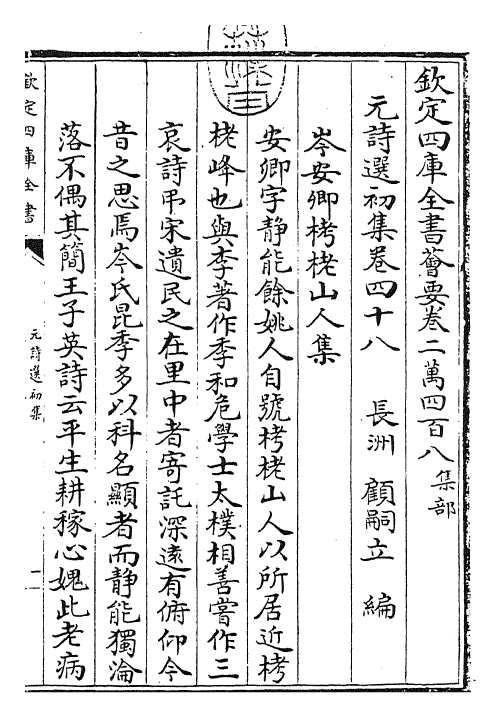 欽定四庫全書薈要卷二萬四百八 集部
元詩選初集卷四十八 長洲 顧嗣立 編
岑安卿栲栳山人集
安卿字靜能餘姚人自號栲栳山人以所居近栲
栳峰也與李著作季和危學士太樸相善嘗作三
哀詩弔宋遺民之在里中者寄託深遠有俯仰今
昔之思焉岑氏昆季多以科名顯者而靜能獨淪
落不偶其簡王子英詩云平生耕稼心媿此老病
欽定四庫全書
元詩選初集
一